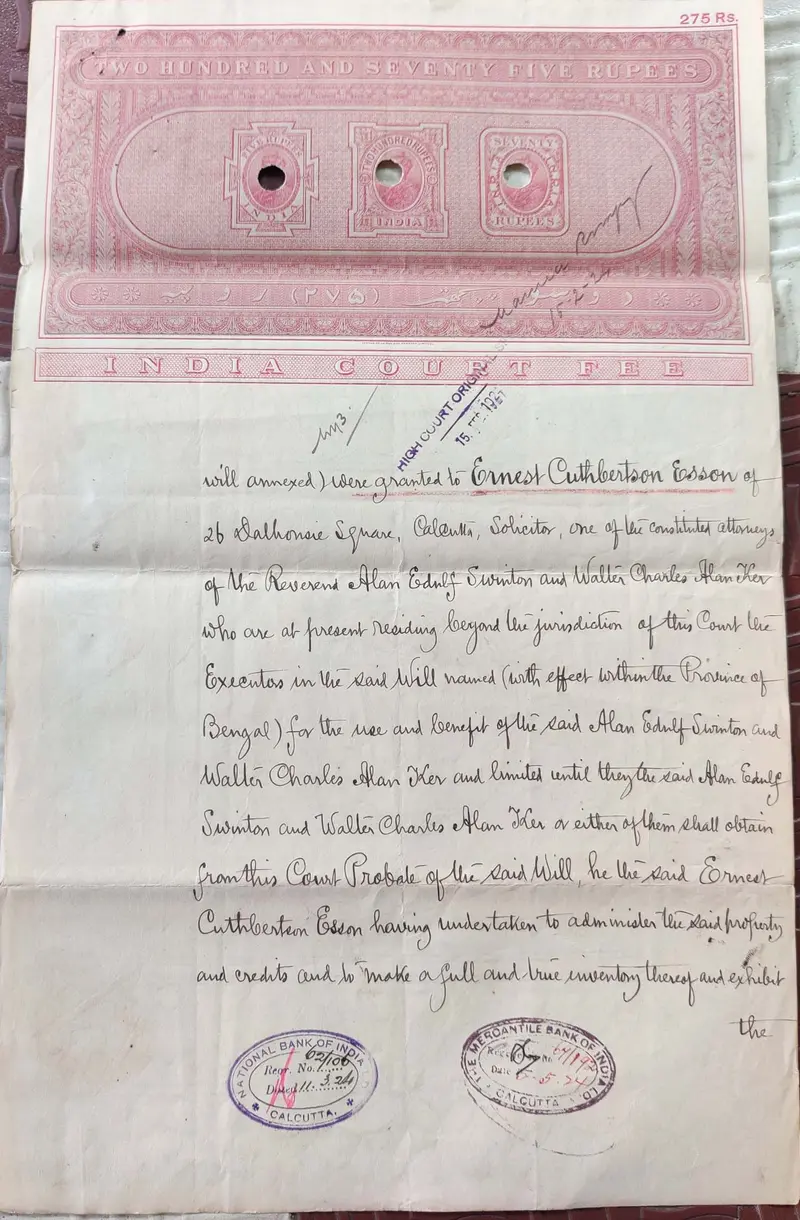 275 Rs.
TWO HUNDRED AND SEVENTY FIVE RUPEES
FIVE RUPEES
INDIA
TWO HUNDRED RUPEES
INDIA
SEVENTY
INDIA
INDIA
RUPEES
(۲۷۵)
15-2-24
INDIA COURT FEE
HIGH COURT ORIGINAL
15
will annexed) were granted to Ernest Cuthbertson Esson of
26 Dalhousie Square, Calcutta, Solicitor, one of the constituted attorneys
of the Reverend Alan Edulf Swinton and Walter Charles Alan Ker
who are at present residing beyond the jurisdiction of this Court the
Executors in the said Will named (with effect within the Province of
Bengal) for the use and benefit of the said Alan Edulf Swinton and
Walter Charles Alan Ker and limited until they the said Alan Edulf
Swinton and Walter Charles Alan Ker or either of them shall obtain
from this Court Probate of the said Will, he the said Ernest
Cuthbertson Esson having undertaken to administer the said property
and credits and to make a full and true inventory thereof and exhibit
the
NATIONAL BANK OF INDIA
Regr. No. 62/106
Dated 11.3.24
CALCUTTA.
THE MERCANTILE BANK OF INDIA LD.
No.
Date 5.24
CALCUTTA